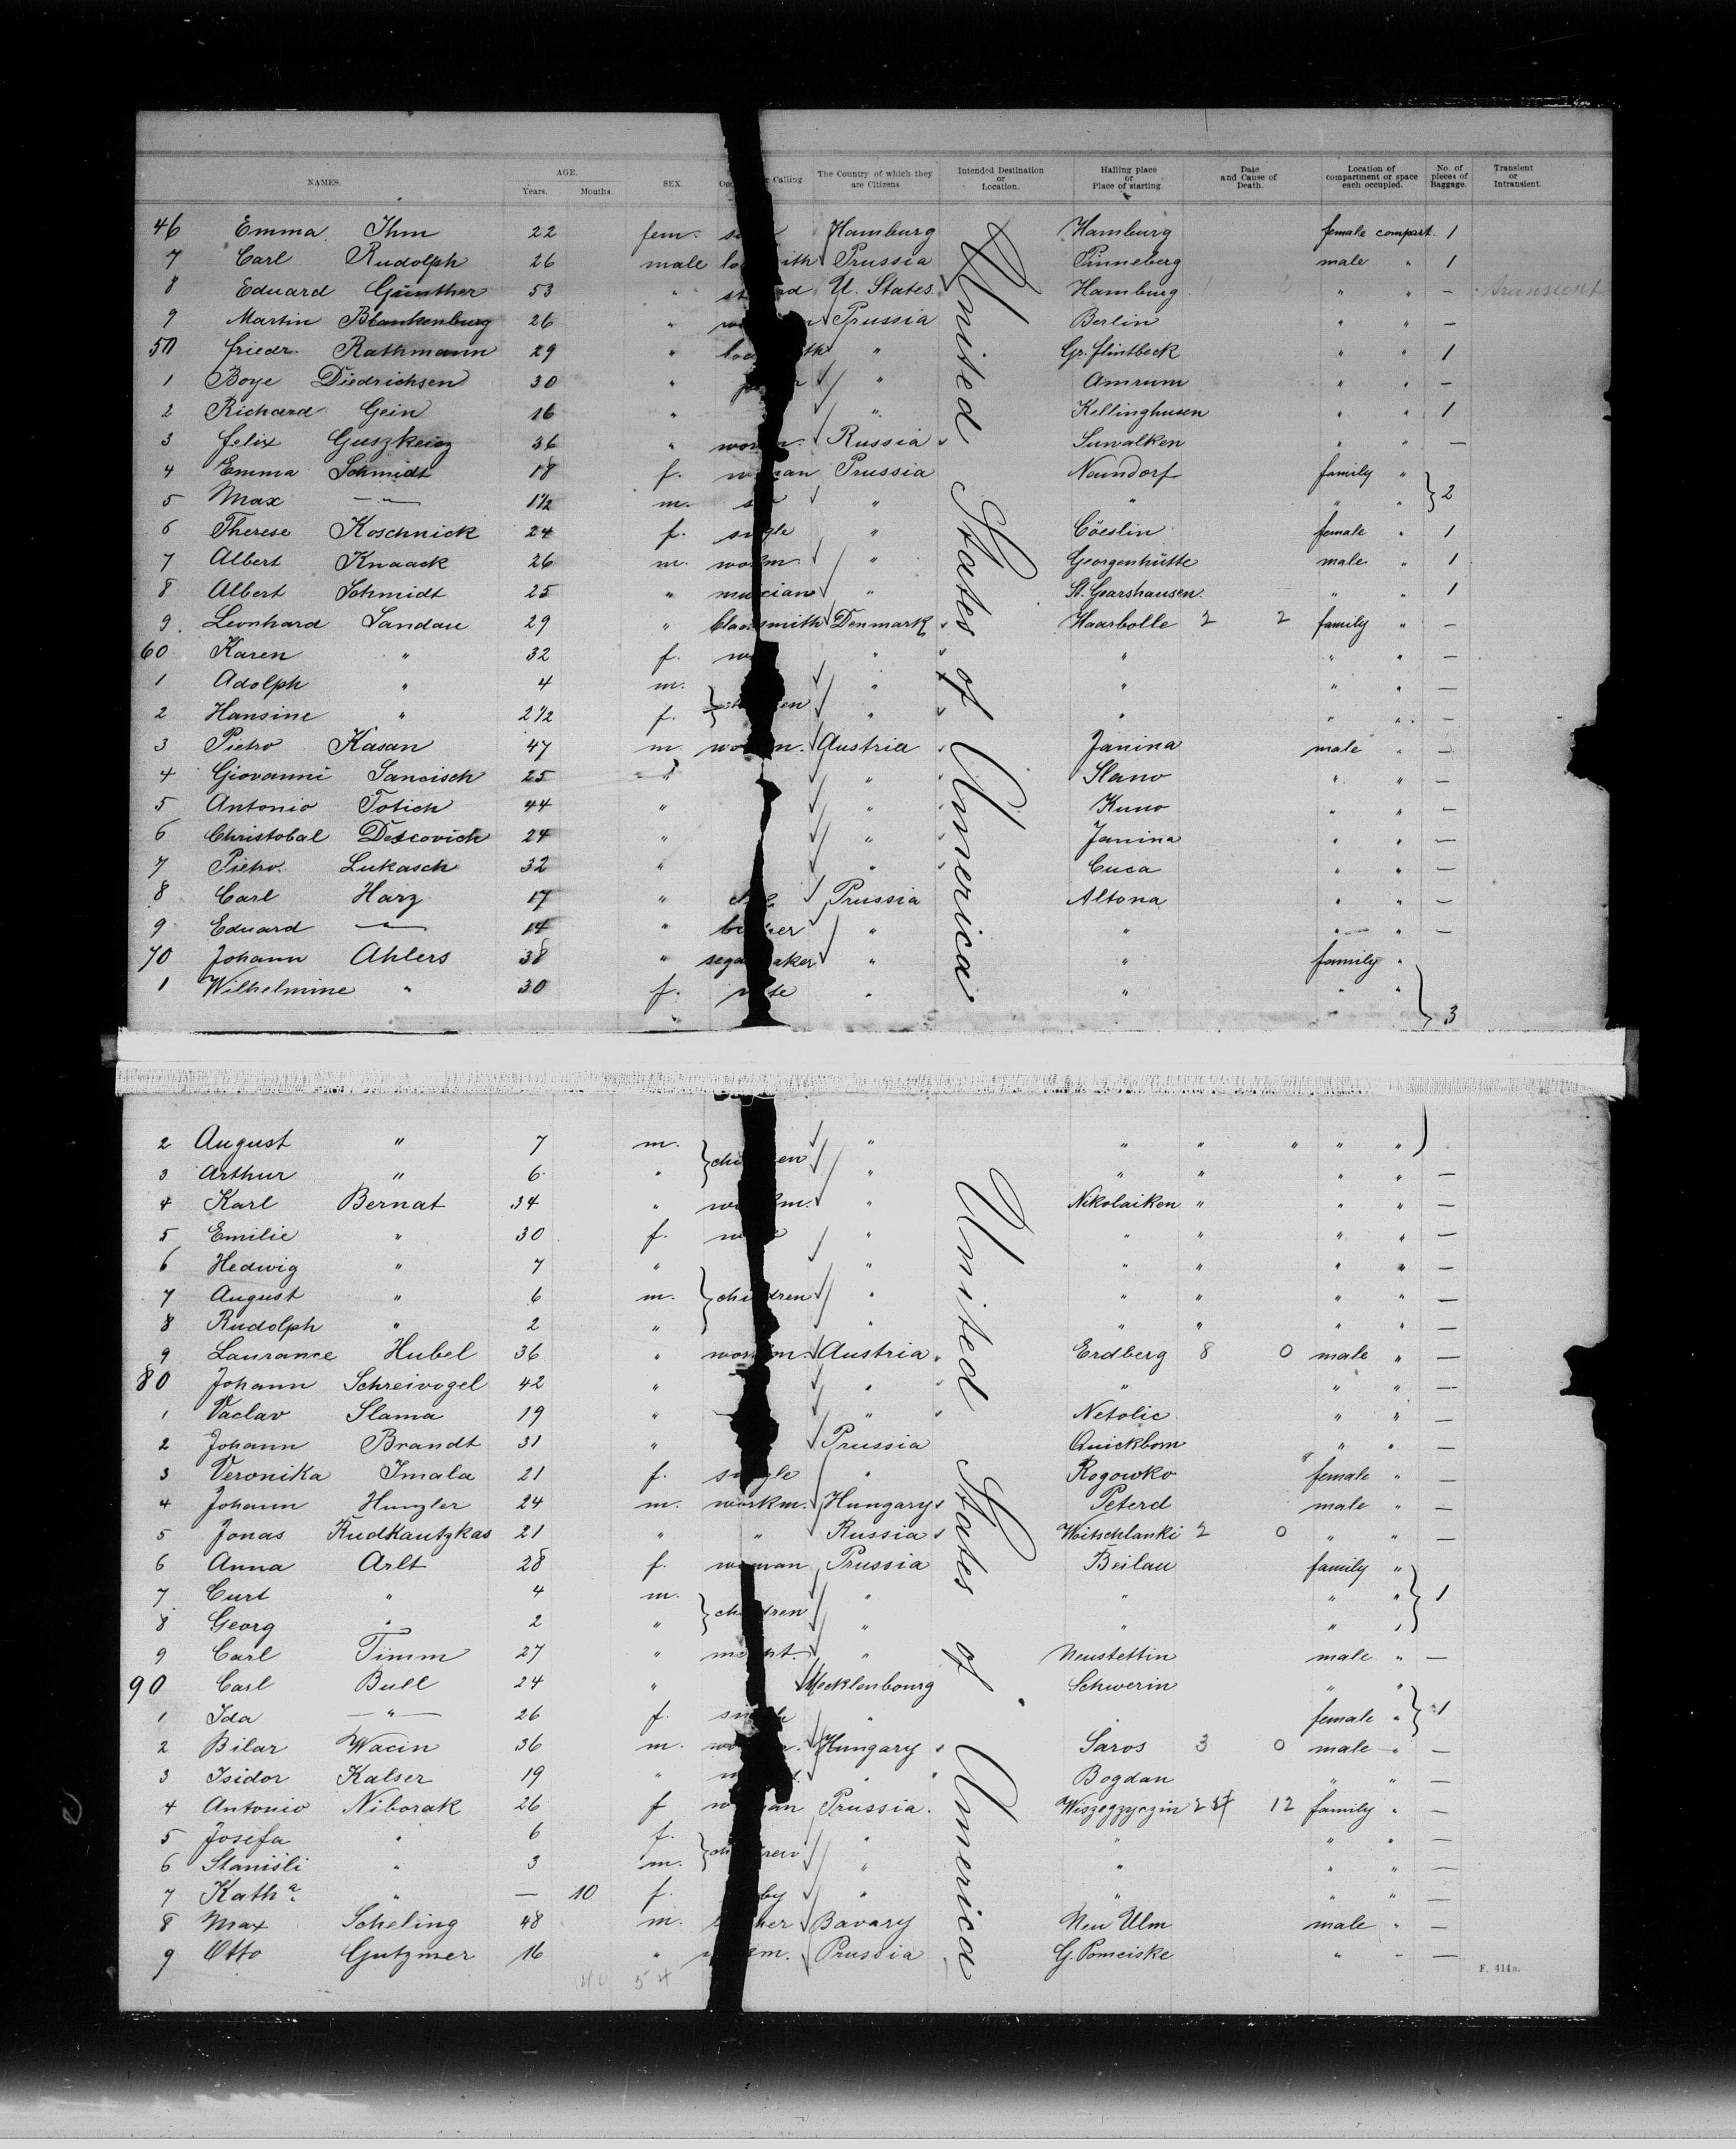 NAMES. AGE. Years. Months. SEX. Calling. The Country of which they are Citizens Intended Destination or Location. Hailing place or Place of starting. Date and Cause of Death. Location of compartment or space each occupied. No. of pieces of Baggage. Transient or Intransient.
46 Emma Ihm 22 fem. Hamburg Hamburg female compart. 1
7 Carl Rudolph 26 male Prussia Pinneberg male " 1
8 Eduard Günther 53 " U. States. Hamburg " " — transient
9 Martin Blankenburg 26 " Prussia Berlin " " —
50 Friedr. Rathmann 29 " " Gr. Flintbeck " " 1
1 Boye Diedrichsen 30 " " Amrum " " —
2 Richard Gein 16 " " Kellinghusen " " 1
3 Felix Guszkeicz 36 " Russia Suwalken " " —
4 Emma Schmidt 18 f. Prussia Naundorf family "
5 Max —"— 1 1/2 m. " " " " } 2
6 Therese Koschnick 24 f. single " Cöeslin female " 1
7 Albert Knaack 26 m. workm " Georgenhütte male " 1
8 Albert Schmidt 25 " musician " St. Goarshausen. " " 1
9. Leonhard Sandau 29 " blacksmith Denmark Haarbolle 2 2 family " —
60 Karen " 32 f. " " " " —
1 Adolph " 4 m. " " " " —
2 Hansine " 2 1/2 f. } children " " " " —
3 Pietro Kasan 47 m. Austria Janina male " —
4 Giovanni Sancisch 25 " " Slano " " —
5 Antonio Totich 44 " " Kuno " " —
6 Christobal Descovich 24 " " Janina " " —
7 Pietro. Lukasch 32 " " Cuca " " —
8 Carl Harz 17 " Prussia Altona " " —
9 Eduard —"— 14 " " " " " —
70 Johann Ahlers 38 " segarmaker " " family "
1 Wilhelmine " 30 f. " " " " } 3
United States of America
2 August " 7 m. " " " " " "
3 Arthur " 6 " } children " " " " " —
4 Karl Bernat 34 " workm. " Nikolaiken " " " —
5 Emilie " 30 f. " " " " " —
6 Hedwig " 7 " " " " " " —
7 August " 6 m. } children " " " " " —
8 Rudolph " 2 " " " " " " —
9 Laurance Hubel 36 " workm. Austria Erdberg 8 0 male " —
80 Johann Schreivogel 42 " " " " " —
1 Vaclav Slama 19 " " Netolic " " —
2 Johann Brandt 31 " Prussia Quickborn " " —
3 Veronika Imala 21 f. single " Rogowko female " —
4 Johann Hunzler 24 m. workm. Hungary Peterd male " —
5 Jonas Rudkautzkas 21 " " Russia Woitschlanki 2 0 " " —
6 Anna Arlt 28 f. woman Prussia Beilau family "
7 Curt " 4 m. " " " " } 1
8 Georg " 2 " } children " " " "
9 Carl Timm 27 " " Neustettin male " —
90 Carl Bull 24 " Mecklenbourg Schwerin " "
1 Ida —"— 26 f. single " female " } 1
2 Bilar Wacin 36 m. Hungary Saros 3 0 male " —
3 Isidor Kalser 19 " " Bogdan " " —
4 Antonio Niborak 26 f woman Prussia. 12 family " —
5 Josefa " 6 f. " " " " —
6 Stanisli " 3 m. } children " " " " —
7 Kath a. " — 10 f. " " " " —
8 Max Scheling 48 m. Bavary Neu Ulm male " —
9 Otto Gutzmer 16 " Prussia G. Pomeiske " " —
United States of America
54
F. 414a.